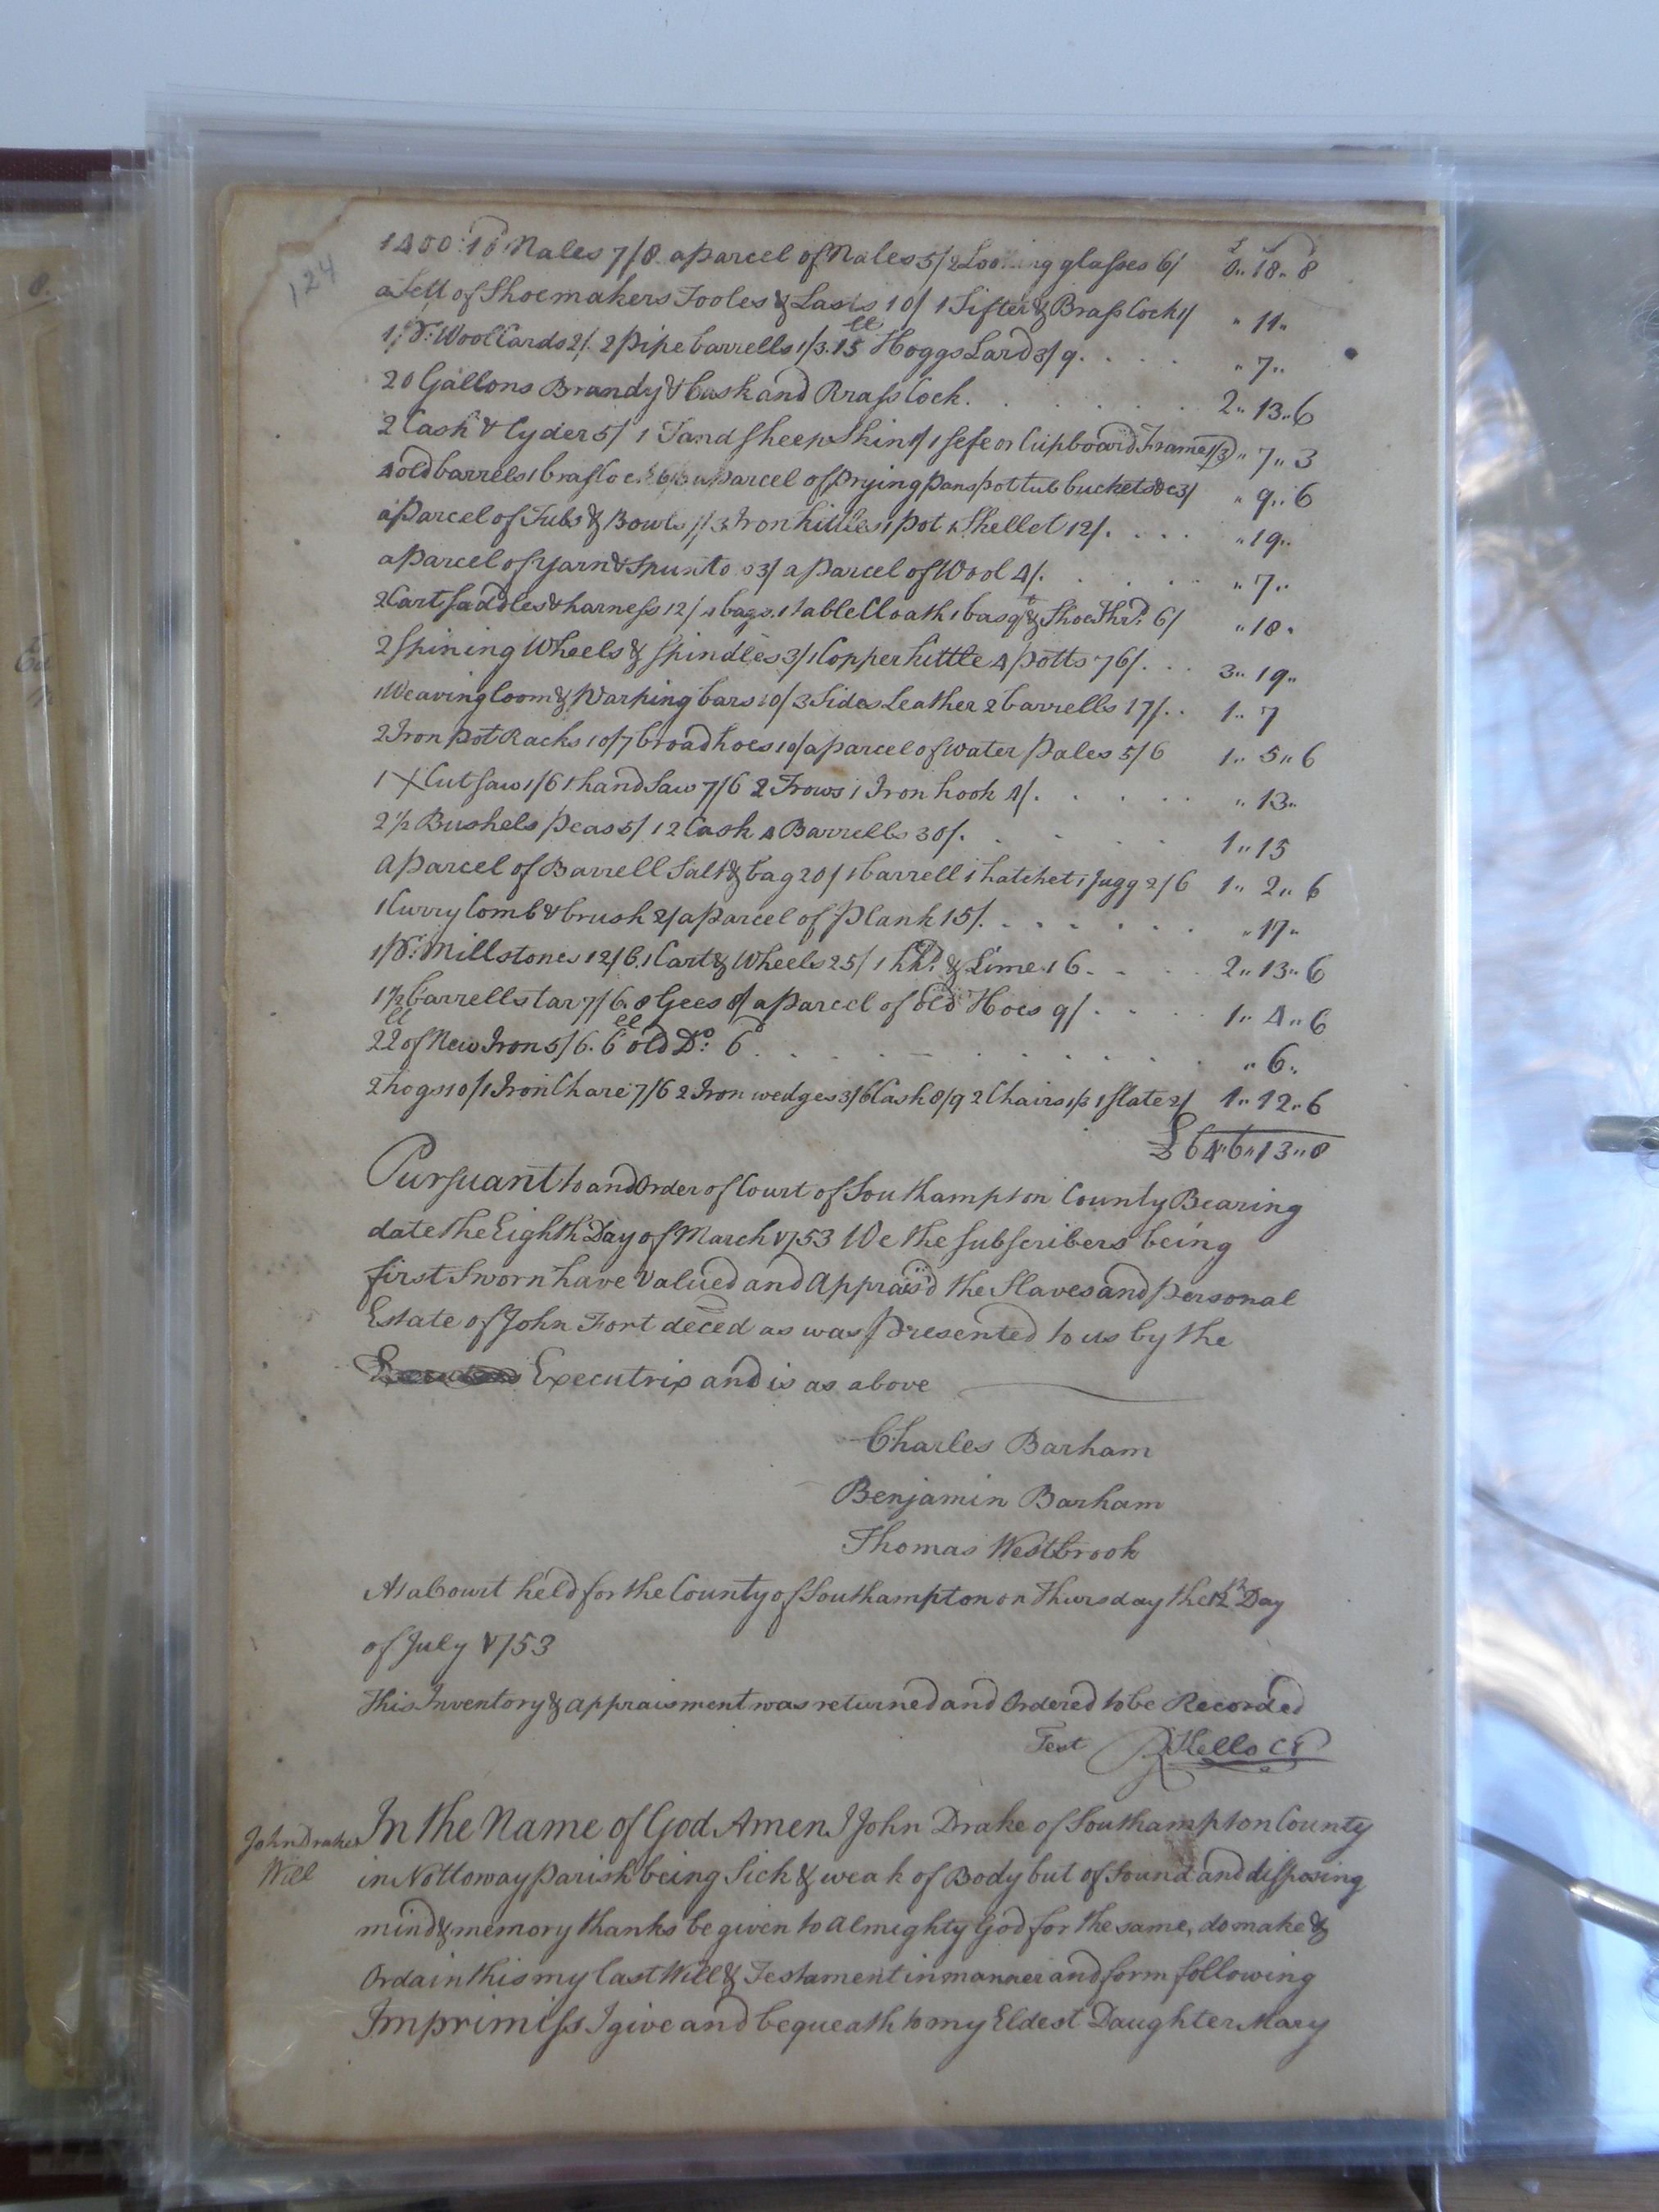 124
£ s d
1400 10d Nales 7/8 a parcel of Nales 5/ 2 Looking glasses 6/ 0,, 18,, 8
a Sett of Shoemakers Tooles & Lasts 10/ 1 Sifter & Brass lock 1/ ,, 11,,
1 pr. Wool Cards 2/. 2 pipe barrells 1/3. 15 ll Hoggs Lard 3/9. . . . ,, 7,,
20 Gallons Brandy & Cask and Brass lock. . . . . . . 2,, 13,, 6
2 Cask & Cyder 5/ 1 Tand Sheep Skin 1/ 1 sefe or Cupboard Frame 1/3 ,, 7,, 3
4 old barrels 1 brass lock 6/6 a parcel of Frying pans pot tub buckets &c 3/ ,, 9,, 6
a parcel of Tubs & Bowls 7/ 3 Iron kittles 1 pot & Skellet 12/. . . . ,, 19,,
a parcel of Yarn & Spun 3/ a parcel of Wool 4/. . . . . ,, 7,,
2 Cart saddles & harness 12/ 4 bags. 1 table Cloath 1 basqt & Shoe Thrd. 6/ ,, 18,,
2 Spining Wheels & Spindles 3/ 1 Copper kittle 4 potts 76/. . . 3,, 19,,
1 Weaving loom & Warping bars 10/ 3 Sides Leather 2 barrells 17/. . 1,, 7
2 Iron pot Racks 10/ 7 broad hoes 10/ a parcel of water pales 5/6 1,, 5,, 6
1 X Cut saw 1/6 1 hand Saw 7/6 2 Frows 1 Iron hook 4/. . . . . ,, 13,,
2 1/2 Bushels peas 5/ 12 Cask 4 Barrells 30/. . . . . 1,, 15
A parcel of Barrell Salt & bag 20/ 1 barrell 1 hatchet 1 Jugg 2/6 1,, 2,, 6
1 Curry Comb & brush 2/ a parcel of plank 15/. . . . . . ,, 17,,
1 pr. Millstones 12/6. 1 Cart & Wheels 25/ 1 hhd. & Lime 16. . . . 2,, 13,, 6
1 1/2 barrells tar 7/6. 8 Gees 8/ a parcel of old Hoes 9/. . . . 1,, 4,, 6
22 ll of New Iron 5/6. 6 ll old Do. 6d. . . . . . . . ,, 6,,
2 hogs 10/ 1 Iron Chare 7/6 2 Iron wedges 3/6 Cash 8/9 2 Chairs 1/3 1 slate 2/ 1,, 12,, 6
£ 646,, 13,, 8
Pursuant to and Order of Court of Southampton County Bearing
date the Eighth Day of March 1753 We the subscribers being
first Sworn have Valued and Apprais'd the Slaves and personal
Estate of John Fort deced as was presented to us by the
Executrix and is as above
Charles Barham
Benjamin Barham
Thomas Westbrook
At a Court held for the County of Southampton on Thursday the 12th Day
of July 1753
This Inventory & appraisment was returned and Ordered to be Recorded
Test R Kello C C
John Drakes
Will
In the Name of God Amen I John Drake of Southampton County
in Nottoway parish being Sick & weak of Body but of Sound and disposing
mind & memory thanks be given to Almighty God for the same, do make &
Ordain this my last Will & Testament in manner and form following
Imprimiss I give and bequeath to my Eldest Daughter Mary